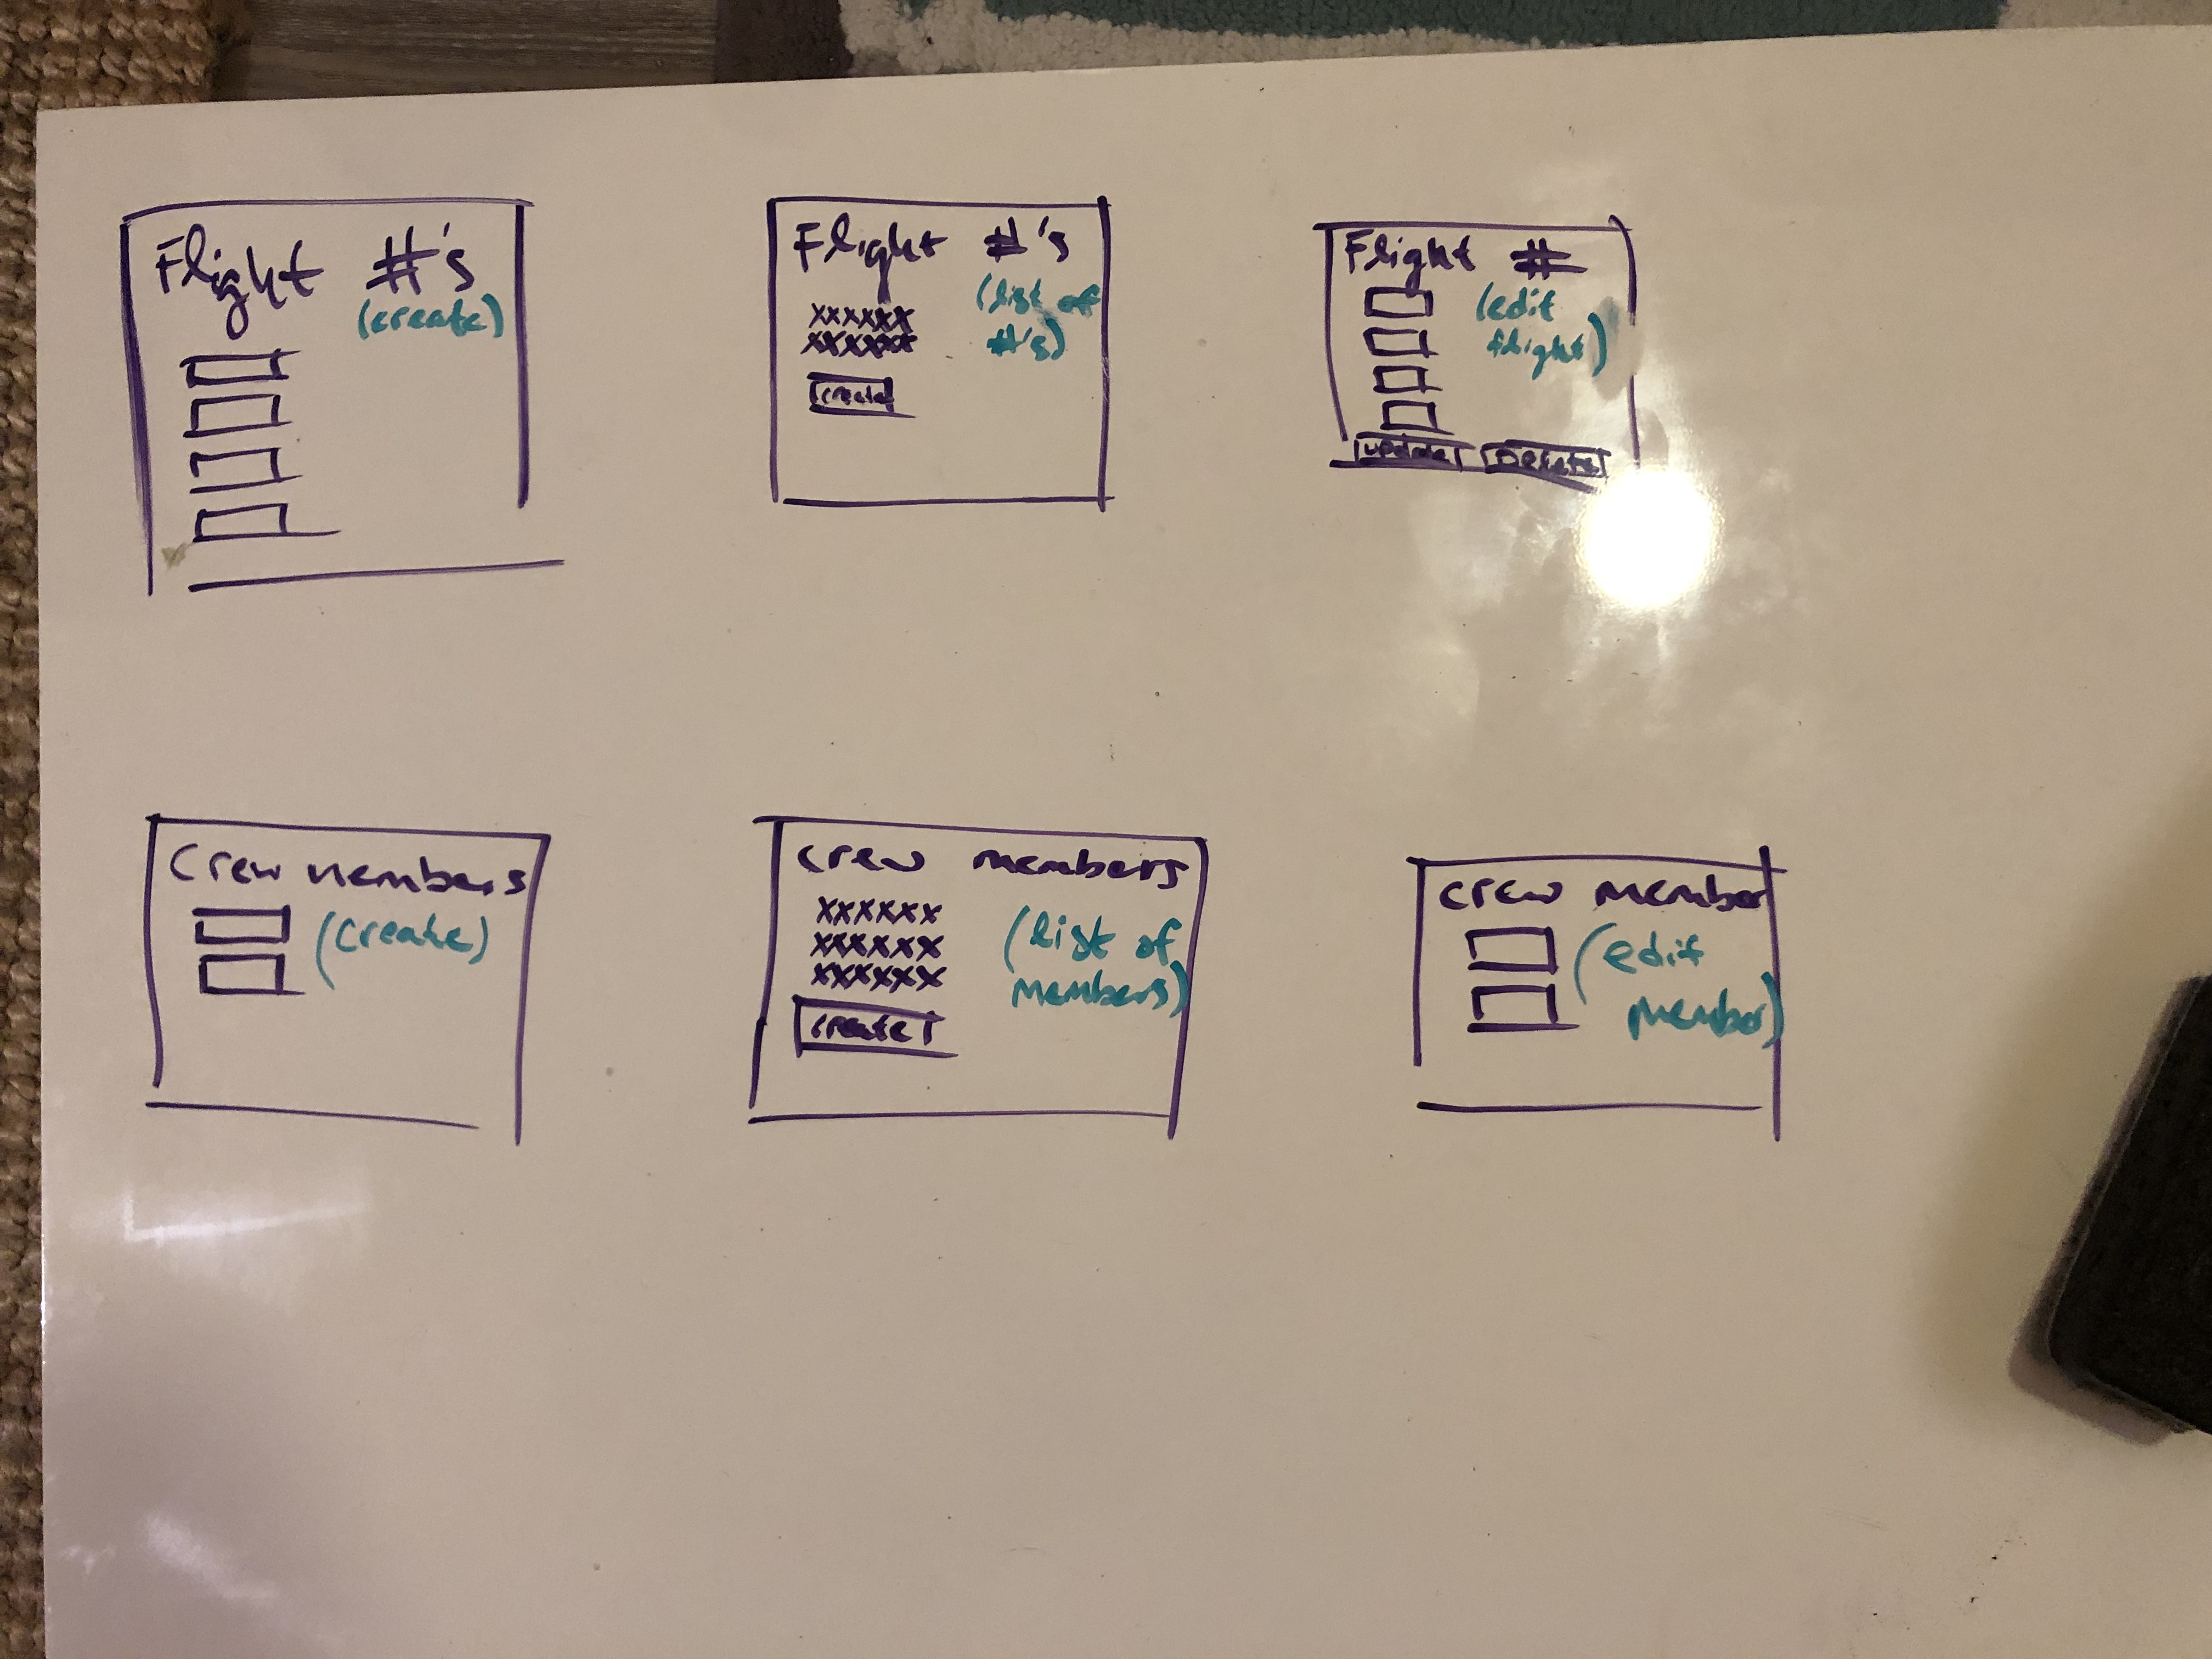 Flight #'s
(create)
Flight #'s
(list of
#'s)
xxxxxx
xxxxxx
create
Flight #
(edit
flight)
update Delete
Crew members
(create)
crew members
xxxxxx
xxxxxx
xxxxxx
(list of
members)
create
crew member
(edit
member)